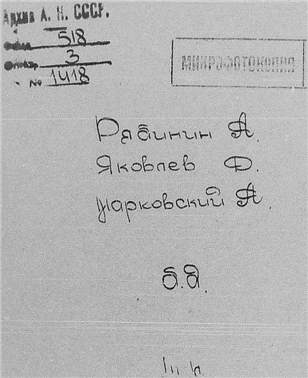 Архив А. Н. СССР.
Фонд 518
Опись 3
№ 1418
МИКРОФОТОКОПИЯ
Рябинин А.
Яковлев Д.
Царковский А.
Б.д.